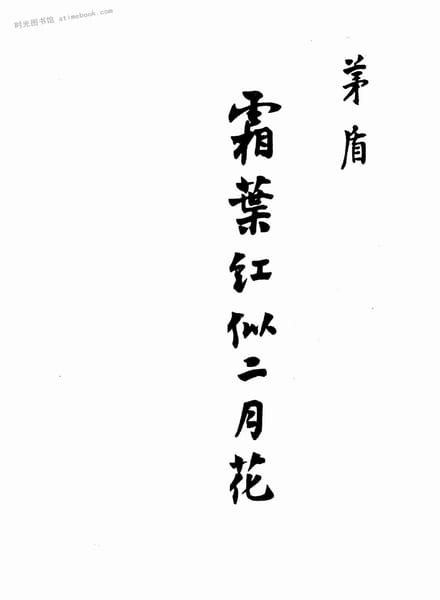 时光图书馆 atimebook.com
茅盾
霜葉红似二月花